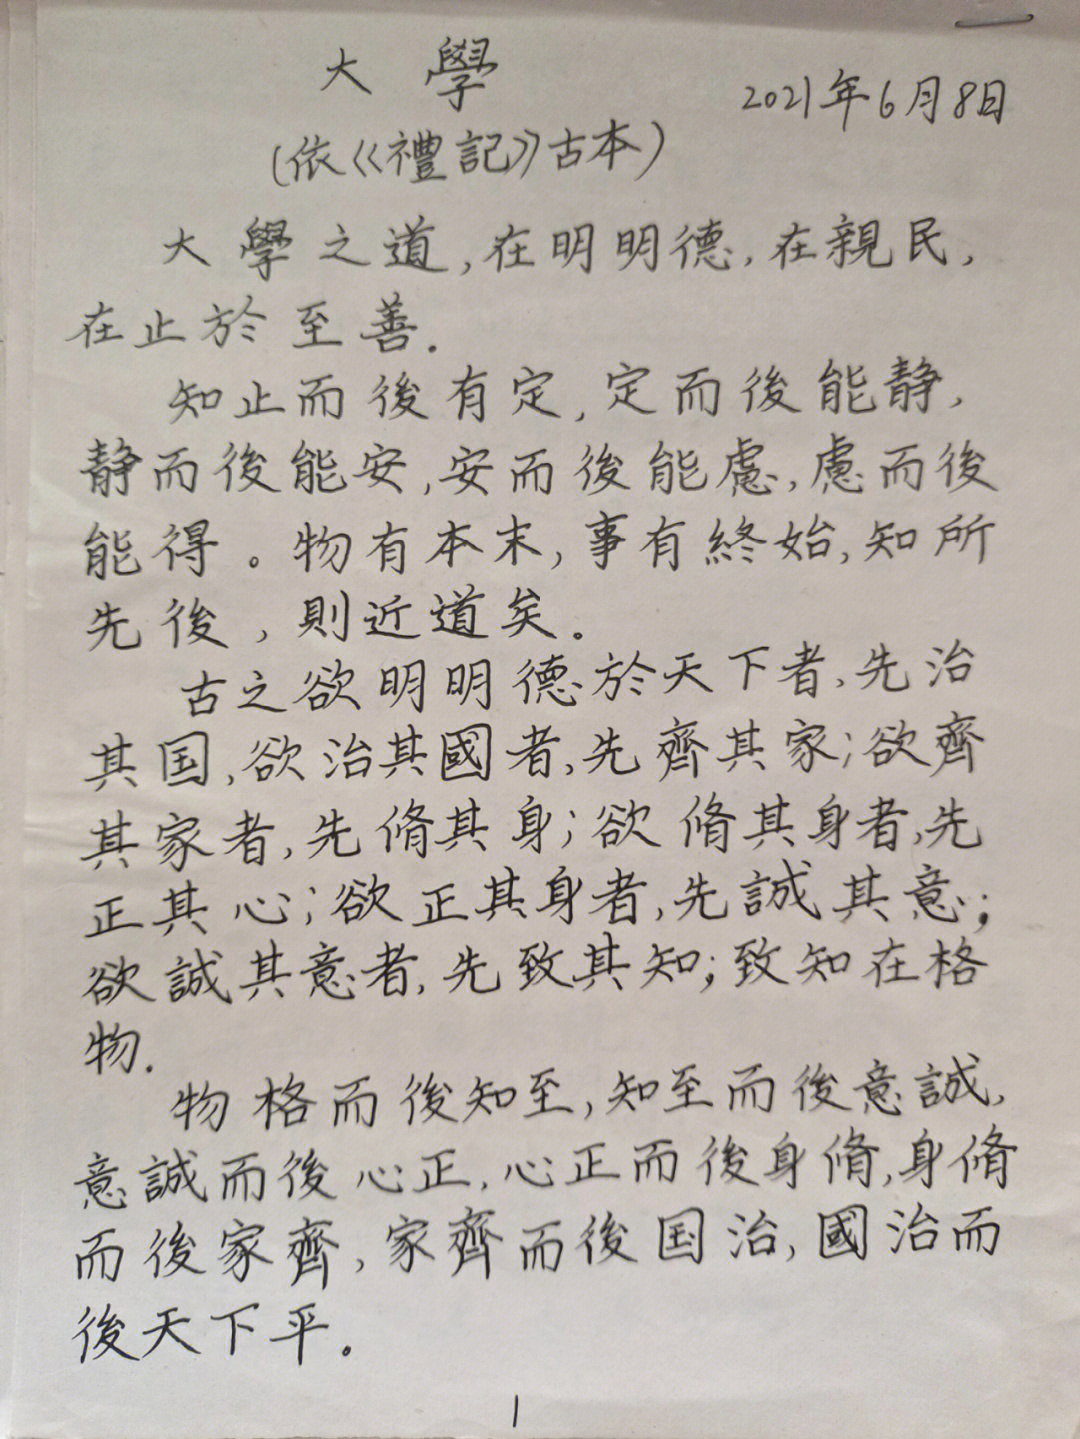 大學
2021年6月8日
(依《禮記》古本)
大學之道,在明明德,在親民,
在止於至善.
知止而後有定,定而後能静,
静而後能安,安而後能慮,慮而後
能得。物有本末,事有終始,知所
先後,則近道矣。
古之欲明明德於天下者,先治
其国,欲治其國者,先齊其家;欲齊
其家者,先脩其身;欲脩其身者,先
正其心;欲正其身者,先誠其意;
欲誠其意者,先致其知;致知在格
物.
物格而後知至,知至而後意誠,
意誠而後心正,心正而後身脩,身脩
而後家齊,家齊而後国治,國治而
後天下平。
1